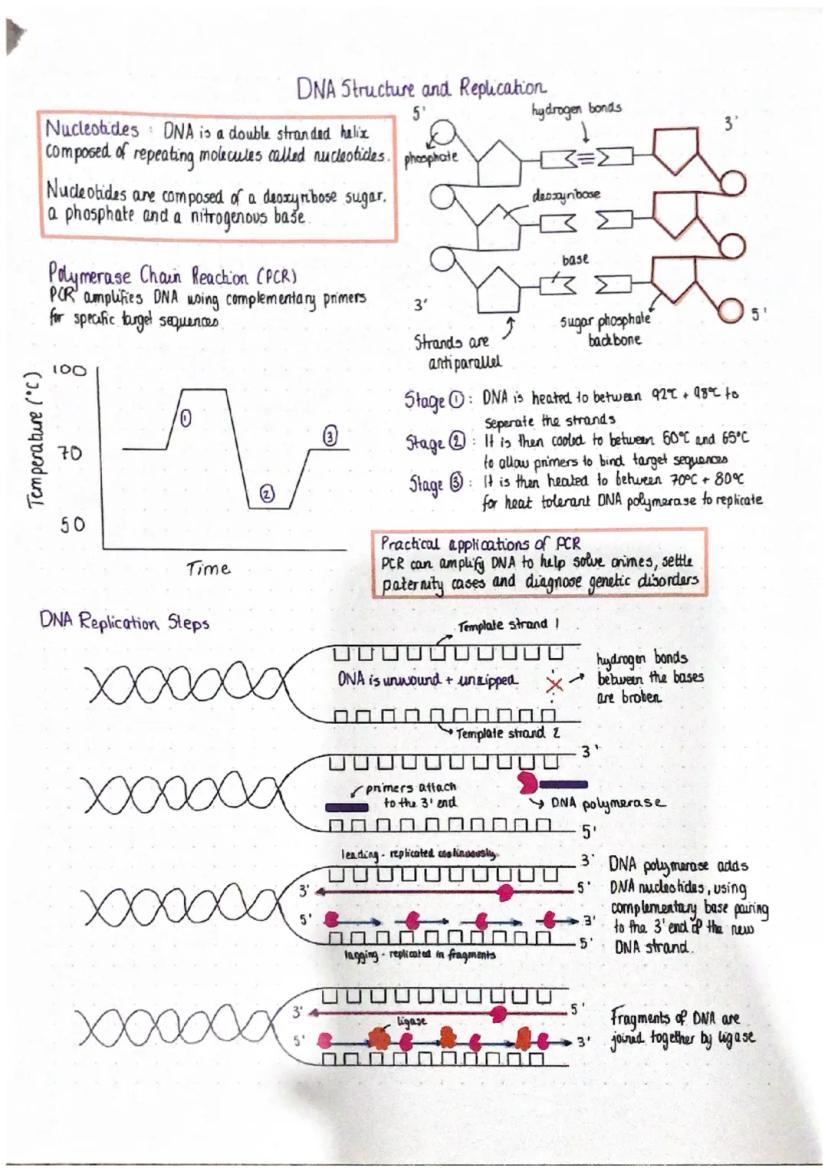 DNA Structure and Replication
Nucleotides : DNA is a double stranded helix
composed of repeating molecules called nucleotides.
Nucleotides are composed of a deoxyribose sugar,
a phosphate and a nitrogenous base.
5'
hydrogen bonds
3'
phosphate
deoxyribose
base
3'
5'
Strands are
antiparallel
sugar phosphate
backbone
Polymerase Chain Reaction (PCR)
PCR amplifies DNA using complementary primers
for specific target sequences.
Temperature (°C)
100
70
50
1
2
3
Time
Stage 1 : DNA is heated to between 92°C + 98°C to
seperate the strands
Stage 2 : It is then cooled to between 50°C and 65°C
to allow primers to bind target sequences
Stage 3 : It is then heated to between 70°C + 80°C
for heat tolerant DNA polymerase to replicate
Practical applications of PCR
PCR can amplify DNA to help solve crimes, settle
paternity cases and diagnose genetic disorders
DNA Replication Steps
Template strand 1
DNA is unwound + unzipped
hydrogen bonds
between the bases
are broken
Template strand 2
3'
primers attach
to the 3' end
DNA polymerase
5'
leading - replicated continuously
3'
3'
5'
5'
3'
5'
lagging - replicated in fragments
DNA polymerase adds
DNA nucleotides, using
complementary base pairing
to the 3' end of the new
DNA strand.
3'
5'
ligase
5'
3'
Fragments of DNA are
joined together by ligase